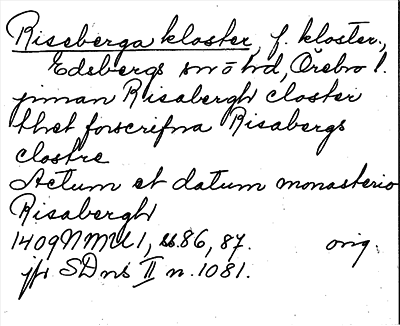 Riseberga kloster, f. kloster,
Edsbergs sn o hd, Örebro l.
jnnan Risabergh closter
thet forscrifna Risabergs
clostre
Actum et datum monasterio
Risabergh
1409 NMU 1, s. 86, 87. orig.
jfr SDns II n. 1081.